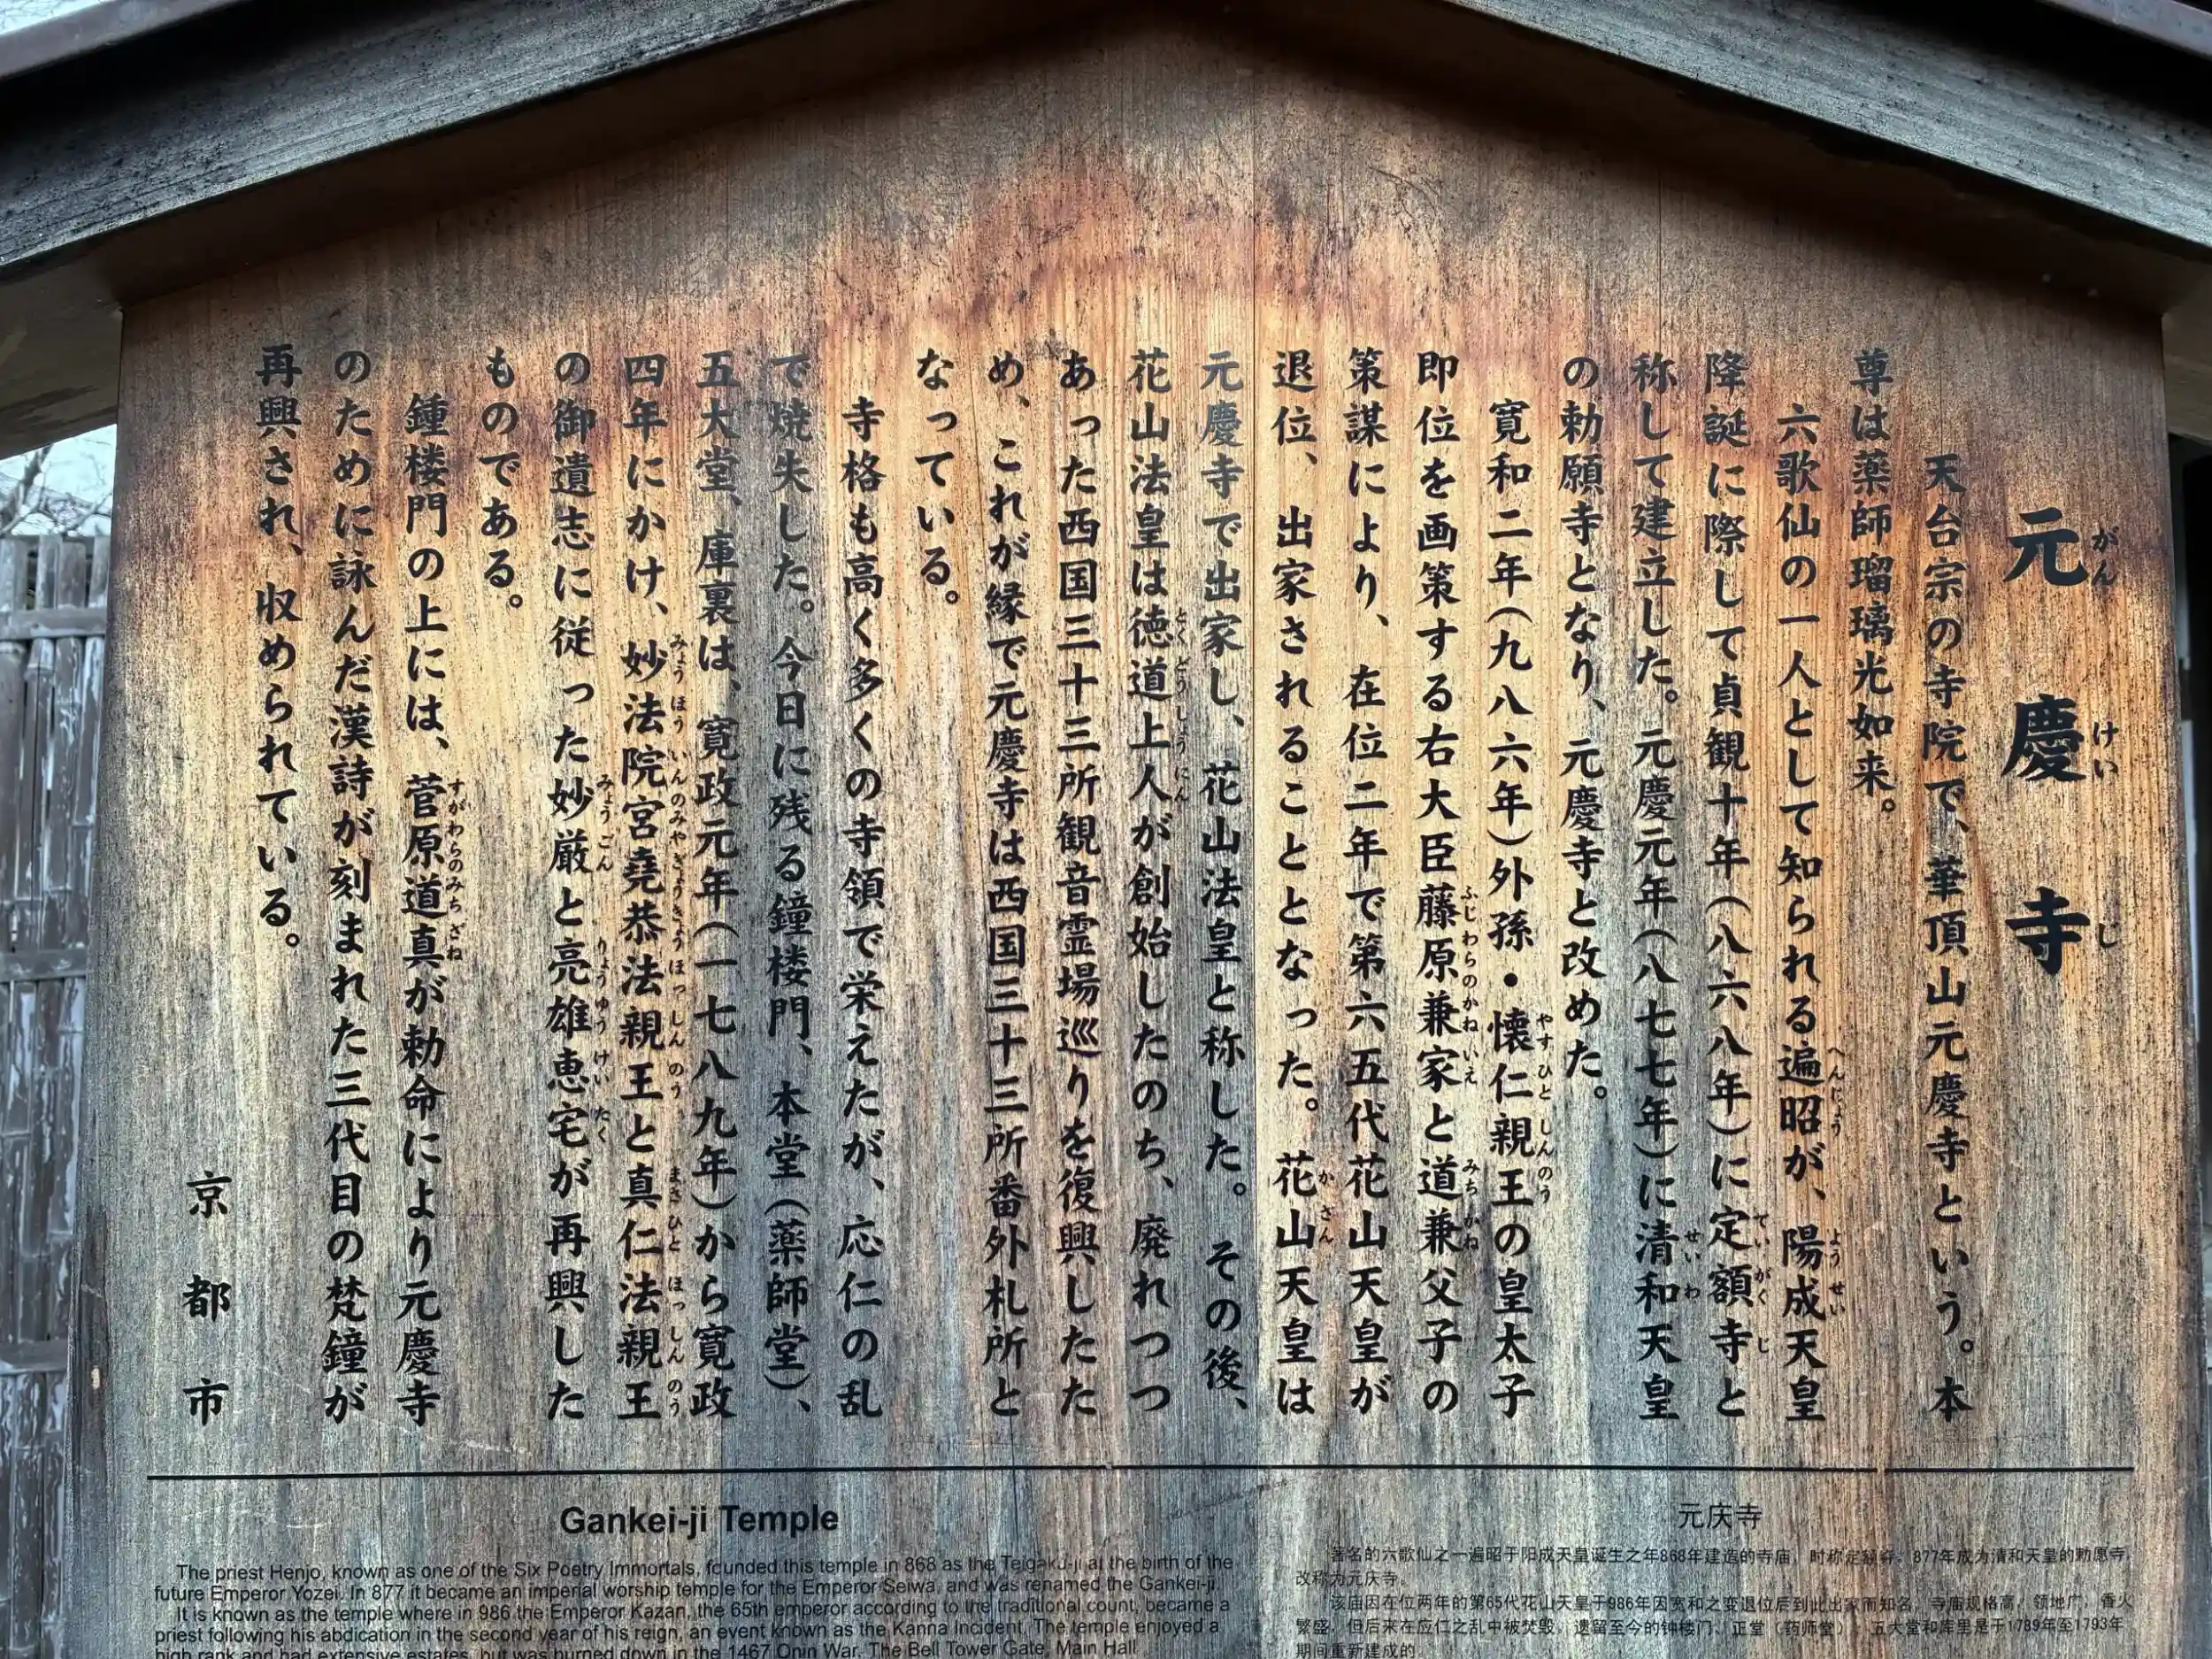 元慶寺
がんけいじ
天台宗の寺院で、華頂山元慶寺という。本
尊は薬師瑠璃光如来。
六歌仙の一人として知られる遍昭が、陽成天皇
へんじょう ようぜい
降誕に際して貞観十年（八六八年）に定額寺と
ていがくじ
称して建立した。元慶元年（八七七年）に清和天皇
せいわ
の勅願寺となり、元慶寺と改めた。
寛和二年（九八六年）外孫・懐仁親王の皇太子
やすひとしんのう
即位を画策する右大臣藤原兼家と道兼父子の
ふじわらのかねいえ みちかね
策謀により、在位二年で第六五代花山天皇が
退位、出家されることとなった。花山天皇は
かざん
元慶寺で出家し、花山法皇と称した。その後、
花山法皇は徳道上人が創始したのち、廃れつつ
とくどうしょうにん
あった西国三十三所観音霊場巡りを復興したた
め、これが縁で元慶寺は西国三十三所番外札所と
なっている。
寺格も高く多くの寺領で栄えたが、応仁の乱
で焼失した。今日に残る鐘楼門、本堂（薬師堂）、
五大堂、庫裏は、寛政元年（一七八九年）から寛政
四年にかけ、妙法院宮堯恭法親王と真仁法親王
みょうほういんのみやぎょうきょうほっしんのう まさひとほっしんのう
の御遺志に従った妙厳と亮雄恵宅が再興した
みょうごん りょうゆうけいたく
ものである。
鍾楼門の上には、菅原道真が勅命により元慶寺
すがわらのみちざね
のために詠んだ漢詩が刻まれた三代目の梵鐘が
再興され、収められている。
京都市
Gankei-ji Temple
The priest Henjo, known as one of the Six Poetry Immortals, founded this temple in 868 as the Teigaku-ji at the birth of the
future Emperor Yozei. In 877 it became an imperial worship temple for the Emperor Seiwa, and was renamed the Gankei-ji.
It is known as the temple where in 986 the Emperor Kazan, the 65th emperor according to the traditional count, became a
priest following his abdication in the second year of his reign, an event known as the Kanna Incident. The temple enjoyed a
high rank and had extensive estates, but was burned down in the 1467 Onin War. The Bell Tower Gate, Main Hall
元庆寺
著名的六歌仙之一遍昭于阳成天皇诞生之年868年建造的寺庙，时称定额寺。877年成为清和天皇的勅愿寺，
改称为元庆寺。
该庙因在位两年的第65代花山天皇于986年因宽和之变退位后到此出家而知名。寺庙规格高，领地广，香火
繁盛，但后来在应仁之乱中被焚毁。遗留至今的钟楼门、正堂（药师堂）、五大堂和库里是于1789年至1793年
期间重新建成的。